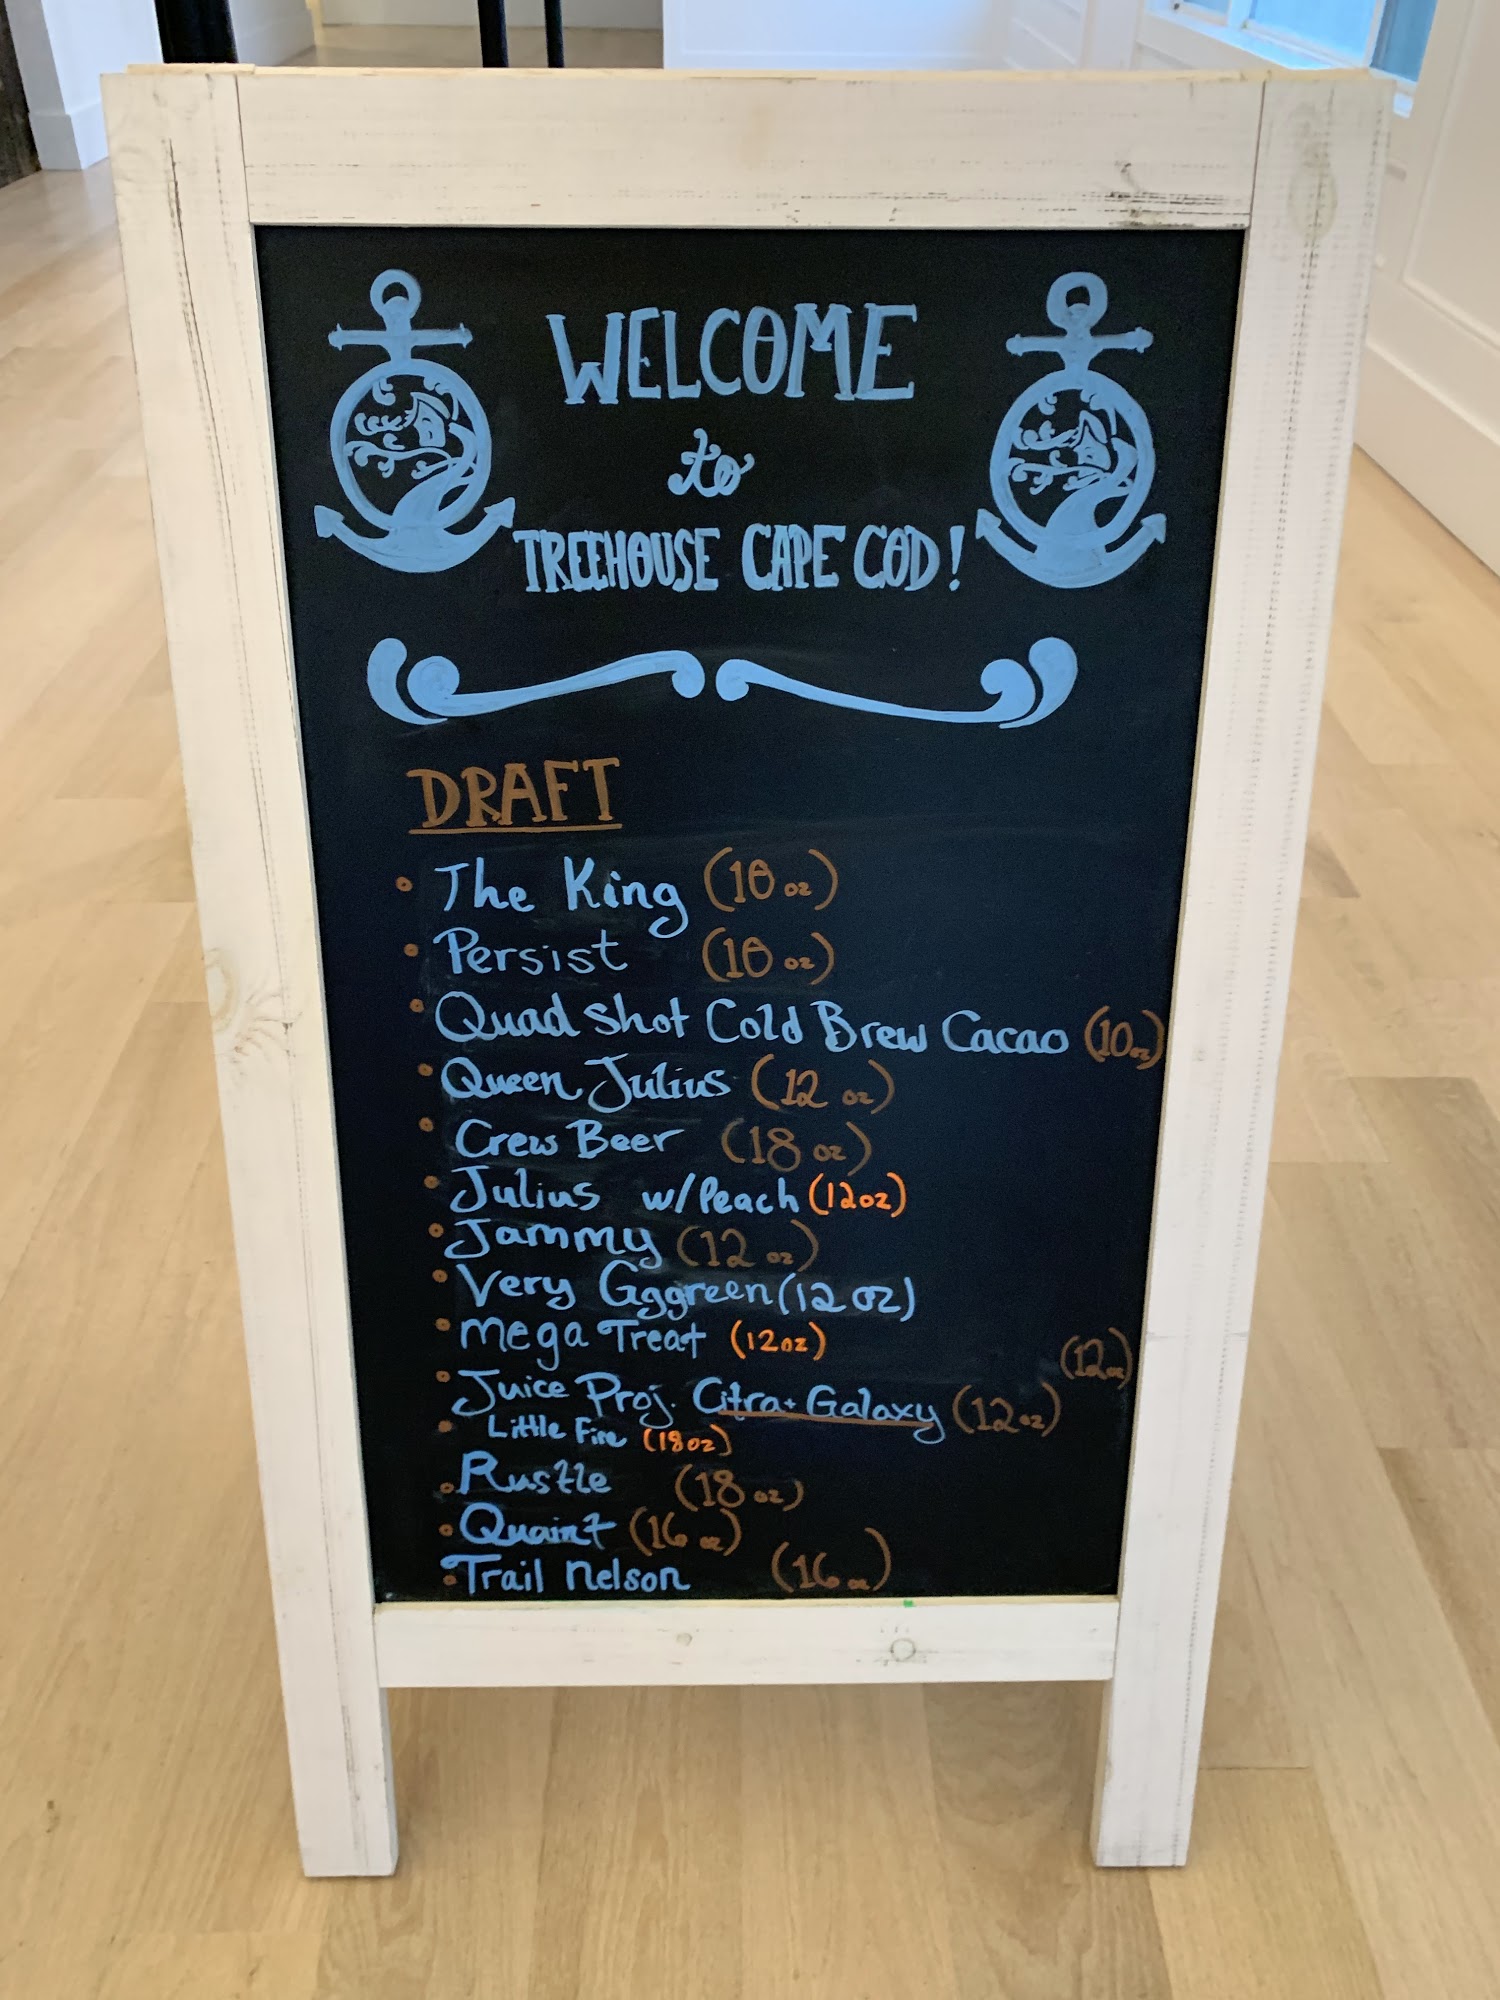 WELCOME
to
TREEHOUSE CAPE COD!
DRAFT
• The King (10 oz)
• Persist (10 oz)
• Quad Shot Cold Brew Cacao (10oz)
• Queen Julius (12 oz)
• Crew Beer (18 oz)
• Julius w/Peach (12oz)
• Jammy (12 oz)
• Very Gggreen (12 oz)
• Mega Treat (12oz)
(12oz)
• Juice Proj. Citra + Galaxy (12oz)
• Little Fire (18oz)
• Rustle (18 oz)
• Quaint (16 oz)
• Trail Nelson (16 oz)